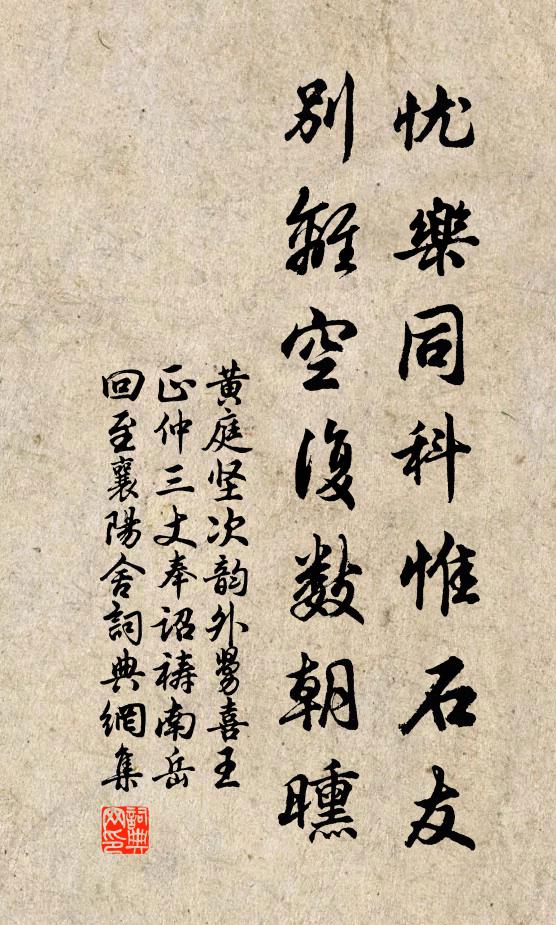 忧樂同科惟石友
別離空復數朝曛
黄庭坚次韵外舅喜王
正仲三丈奉诏禱南岳
回至襄陽舍詞典網集
詞典网印